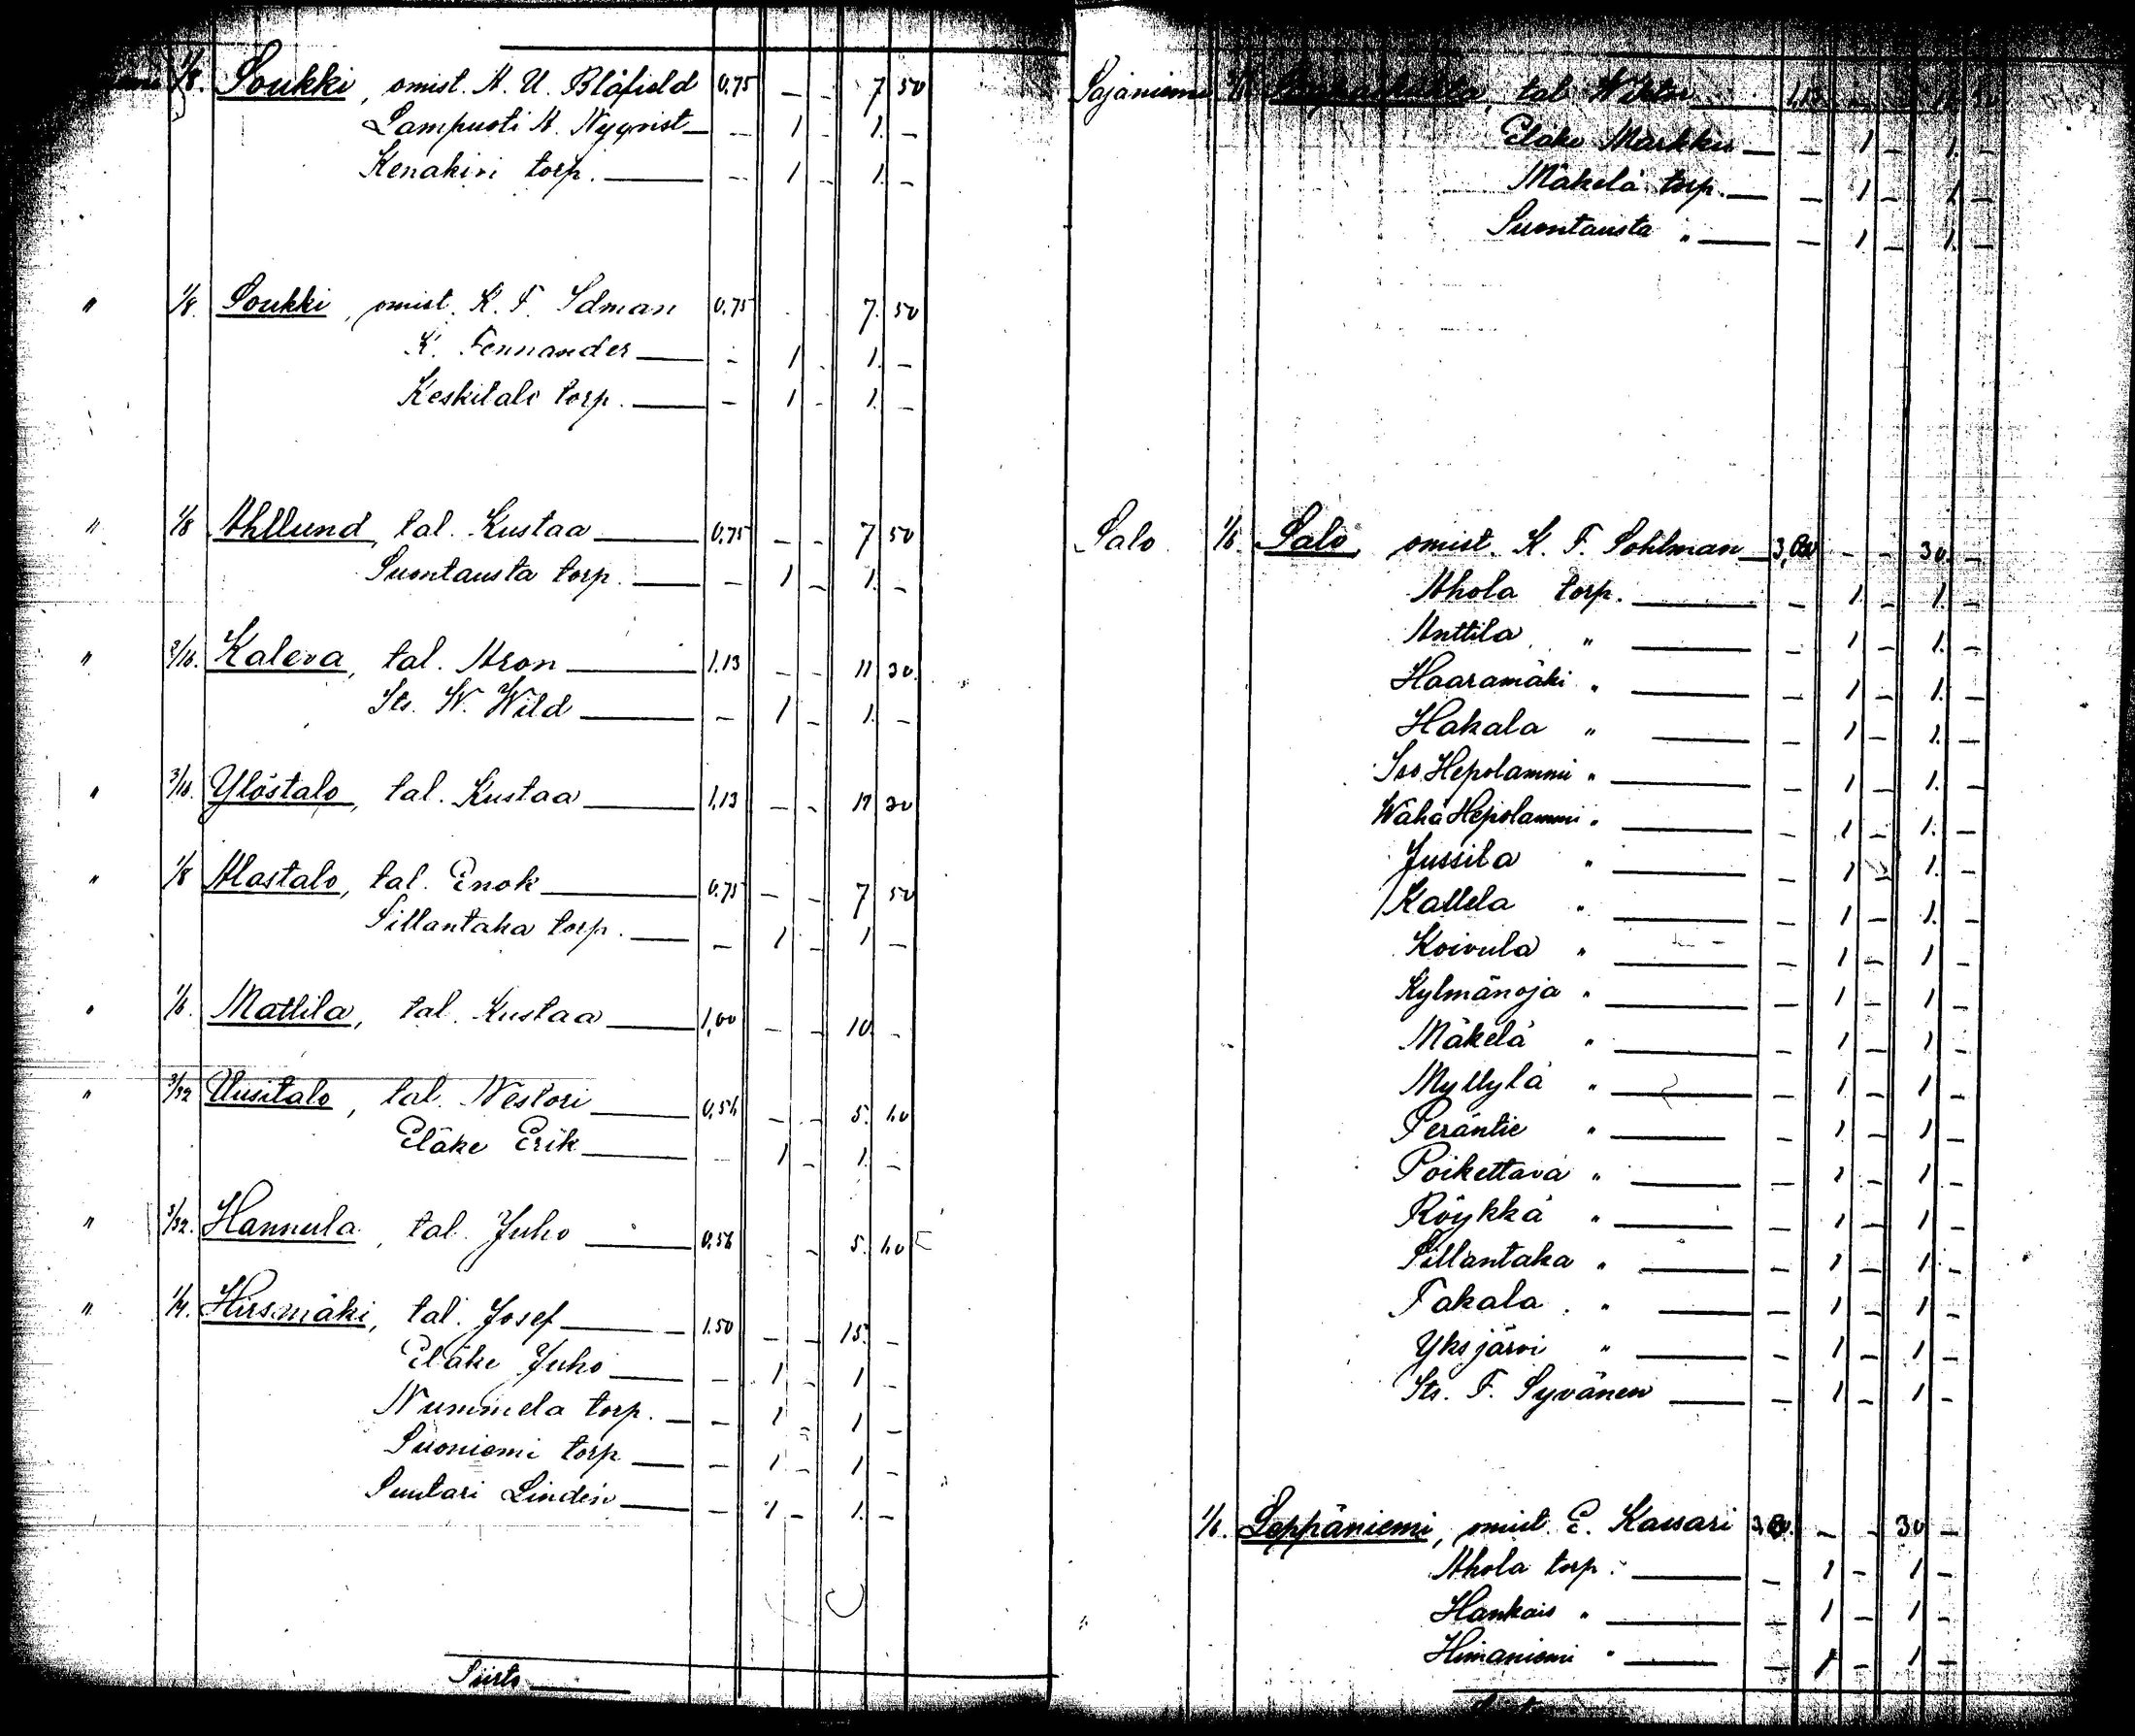 1/8. Soukki, omist. A. U. Blåfield 0.75 — — 7 50
Lampuoti A. Nyqvist — — 1 — 1. —
Kenakivi torp. — — 1 — 1. —
" 1/8. Soukki, omist. K. F. Idman 0.75 7. 50
K. Fennander — — 1 — 1. —
Keskitalo torp. — — 1 — 1. —
" 1/8 Ahllund, tal. Kustaa — 0.75 — — 7 50
Suontausta torp. — — 1 — 1. —
" 3/16. Kaleva, tal. Aron — 1.13 — — 11 30.
Its. W. Wild — — 1 — 1. —
" 3/16. Ylöstalo, tal. Kustaa — 1.13 — — 11 30
" 1/8 Alastalo, tal. Enok — 0.75 — — 7 50
Sillantaka torp. — — 1 — 1 —
" 1/6. Mattila, tal. Kustaa — 1,00 — — 10. —
" 3/32 Uusitalo, tal. Nestori — 0,56 — — 5. 60
Eläke Erik — — 1 — 1. —
" 3/32. Hannula, tal. Juho — 0.56 — 5. 60
" 1/4. Hirsmäki, tal. Josef — 1.50 — — 15. —
Eläke Juho — — 1 — 1 —
Nummela torp. — — 1 — 1 —
Suoniemi torp — — 1 — 1 —
Suutari Lindén — — 1 — 1. —
Siirto —
Pajaniemi tal. — 1,13
Eläke Markku — — 1 — 1. —
Mäkelä torp. — — 1 — 1. —
Suontausta " — — 1 — 1. —
Salo 1/6. Salo, omist. K. F. Sohlman — 3,00 — — 30. —
Ahola torp. — — 1. — 1. —
Anttila " — — 1 — 1. —
Haaramäki " — — 1 — 1. —
Hakala " — — 1 — 1. —
Iso Hepolammi " — — 1 — 1. —
Wähä Hepolammi " — — 1 — 1. —
Jussila " — — 1 — 1. —
Kallela " — — 1 — 1. —
Koivula " — — 1 — 1 —
Kylmänoja " — — 1 — 1 —
Mäkelä " — — 1 — 1 —
Myllylä " — — 1 — 1 —
Peräntie " — — 1 — 1 —
Poikettava " — — 1 — 1 —
Röykkä " — — 1 — 1 —
Sillantaka " — — 1 — 1 —
Takala " — — 1 — 1 —
Yksjärvi " — — 1 — 1 —
Its. F. Syvänen — — 1 — 1 —
1/6. Leppäniemi, omist. E. Kassari — — 30 —
Ahola torp. — — 1 — 1 —
Hankais " — — 1 — 1 —
Himaniemi " — — 1 — 1 —